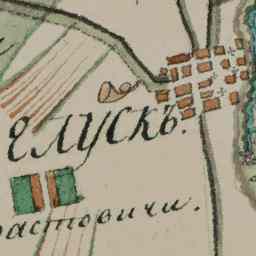 елускъ.
растовичи.